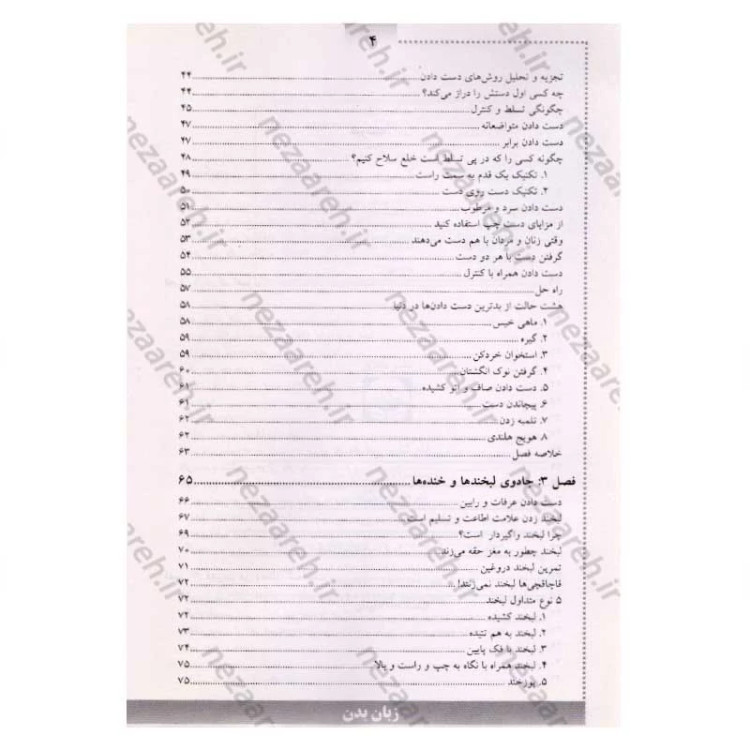 ۴
تجزیه و تحلیل روش‌های دست دادن ۴۴
چه کسی اول دستش را دراز می‌کند؟ ۴۴
چگونگی تسلط و کنترل ۴۵
دست دادن متواضعانه ۴۷
دست دادن برابر ۴۷
چگونه کسی را که در پی تسلط است خلع سلاح کنیم؟ ۴۸
۱. تکنیک یک قدم به سمت راست ۴۹
۲. تکنیک دست روی دست ۵۰
دست دادن سرد و مرطوب ۵۱
از مزایای دست چپ استفاده کنید ۵۲
وقتی زنان و مردان با هم دست می‌دهند ۵۳
گرفتن دست با هر دو دست ۵۴
دست دادن همراه با کنترل ۵۵
راه حل ۵۷
هشت حالت از بدترین دست دادن‌ها در دنیا ۵۸
۱. ماهی خیس ۵۸
۲. گیره ۵۹
۳. استخوان خردکن ۵۹
۴. گرفتن نوک انگشتان ۶۰
۵. دست دادن صاف و اتو کشیده ۶۱
۶. پیچاندن دست ۶۱
۷. تلمبه زدن ۶۲
۸. هویج هلندی ۶۲
خلاصه فصل ۶۳
فصل ۳: جادوی لبخندها و خنده‌ها ۶۵
دست دادن عرفات و رابین ۶۶
لبخند زدن علامت اطاعت و تسلیم است ۶۷
چرا لبخند واگیردار است؟ ۶۹
لبخند چطور به مغز حقه می‌زند ۷۰
تمرین لبخند دروغین ۷۱
قاچاقچی‌ها لبخند نمی‌زنند! ۷۲
۵ نوع متداول لبخند ۷۲
۱. لبخند کشیده ۷۲
۲. لبخند به هم تنیده ۷۳
۳. لبخند با فک پایین ۷۴
۴. لبخند همراه با نگاه به چپ و راست و بالا ۷۵
۵. پوزخند ۷۵
زبان بدن
nezaareh.ir